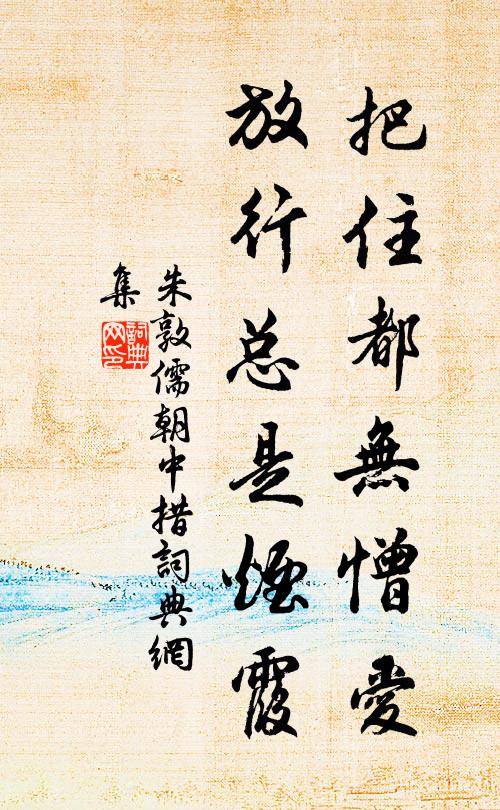 把住都無憎愛
放行总是煙霞
朱敦儒朝中措詞典網
集
詞典網印